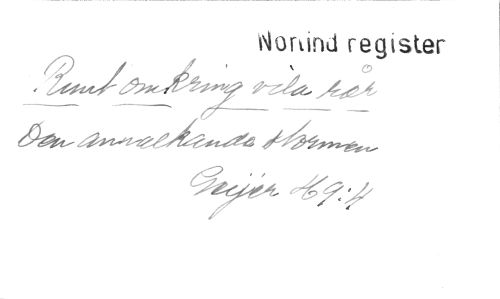 Norlind register
Runt omkring vila rår
Den annalkande stormen
Geijer H9:4